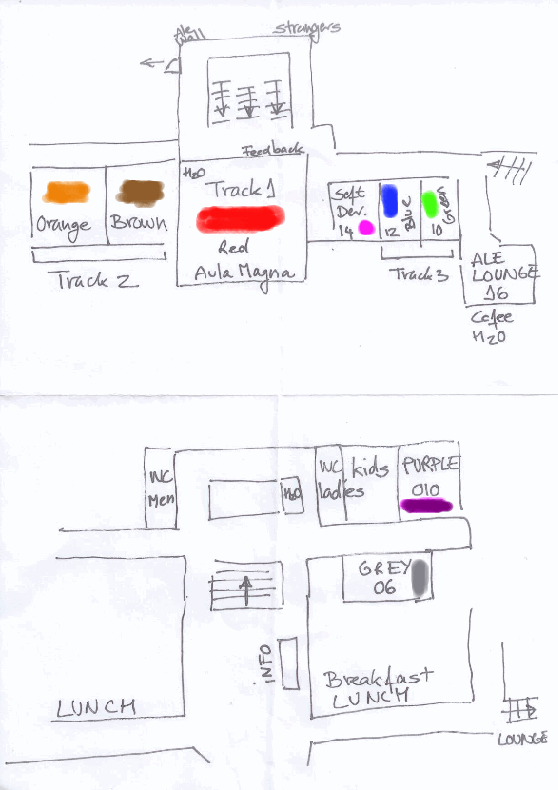 Ale
Wall
strangers
Feedback
H2O
Track 1
Red
Aula Magna
Orange
Brown
Track 2
Soft
Dev.
14
Blue
12
Green
10
Track 3
ALE
LOUNGE
16
Cofee
H2O
WC
Men
H2O
WC
ladies
kids
PURPLE
010
GREY
06
INFO
Breakfast
LUNCH
LUNCH
LOUNGE